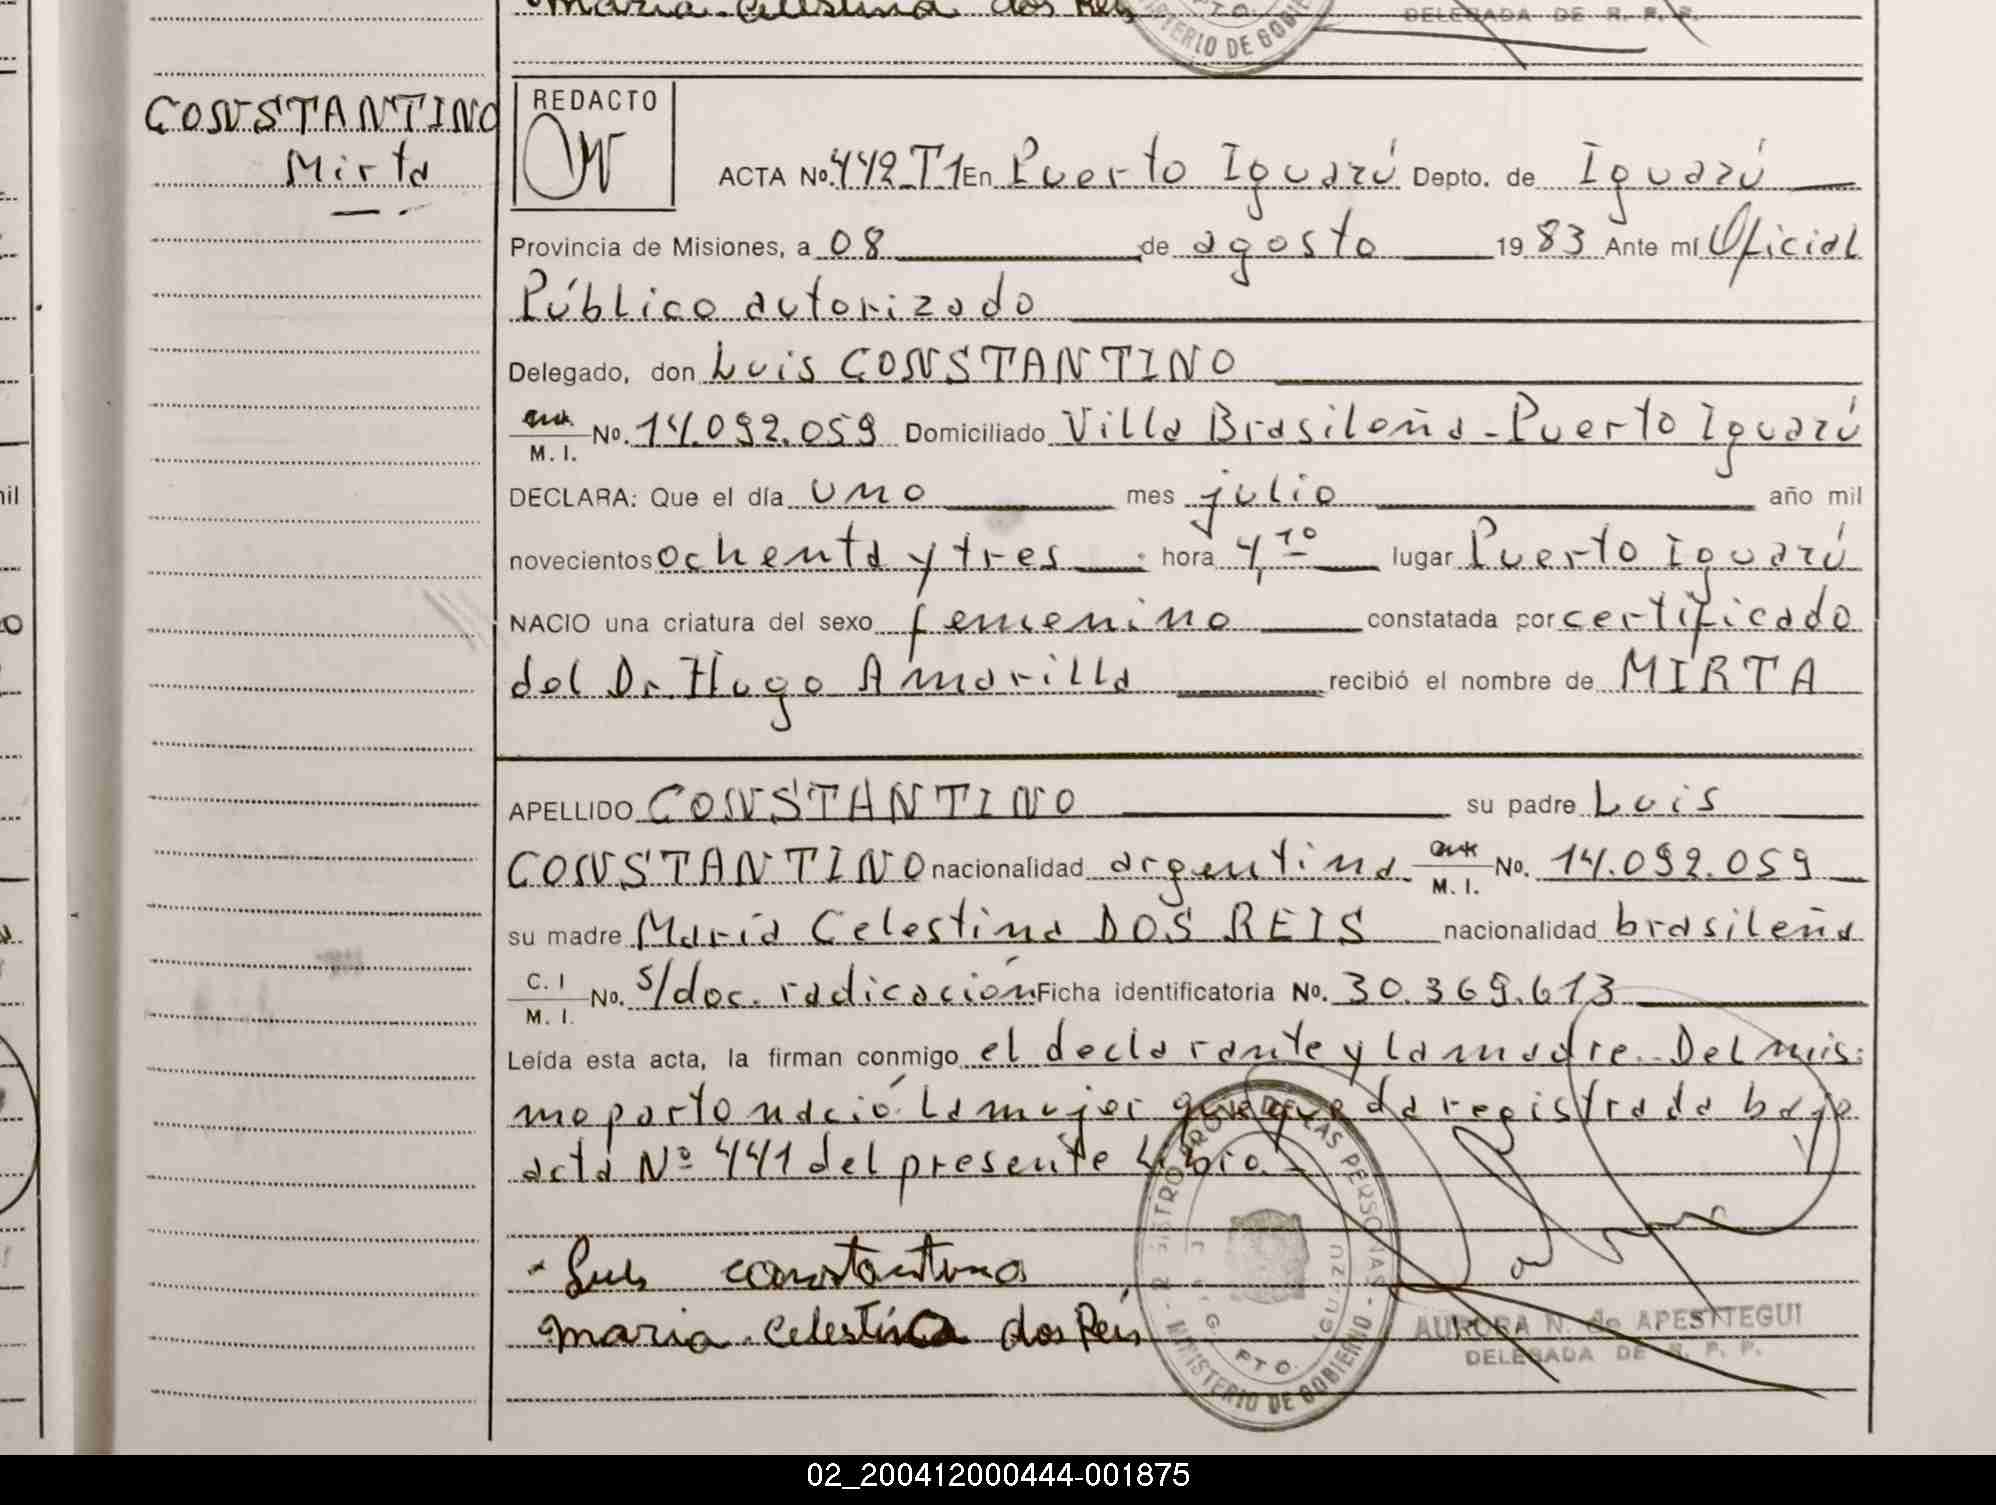 Maria Celestina dos Reis
MINISTERIO DE GOBIERNO
DELEGADA DE R. P. P.
CONSTANTINO
Mirta
REDACTO
ACTA No. 442 T1 En Puerto Iguazú Depto. de Iguazú
Provincia de Misiones, a 08 de agosto 1983 Ante mí Oficial
Público autorizado
Delegado, don Luis CONSTANTINO
M. I. No. 14.092.059 Domiciliado Villa Brasileña - Puerto Iguazú
DECLARA: Que el día uno mes julio año mil
novecientos ochenta y tres hora 4,10 lugar Puerto Iguazú
NACIO una criatura del sexo femenino constatada por certificado
del Dr. Hugo Amarilla recibió el nombre de MIRTA
APELLIDO CONSTANTINO su padre Luis
CONSTANTINO nacionalidad argentina M. I. No. 14.092.059
su madre María Celestina DOS REIS nacionalidad brasileña
C. I M. I. No. s/doc. radicación Ficha identificatoria No. 30.369.613
Leída esta acta, la firman conmigo el declarante y la madre. Del mis:
mo parto nació la mujer que queda registrada bajo
acta Nº 441 del presente Libro.-
Luis constantino
maria Celestina dos Reis
REGISTRO PROV. DE LAS PERSONAS - MINISTERIO DE GOBIERNO
PTO. IGUAZU
AURORA N. de APESTEGUI
DELEGADA DE R. P. P.
02_200412000444-001875